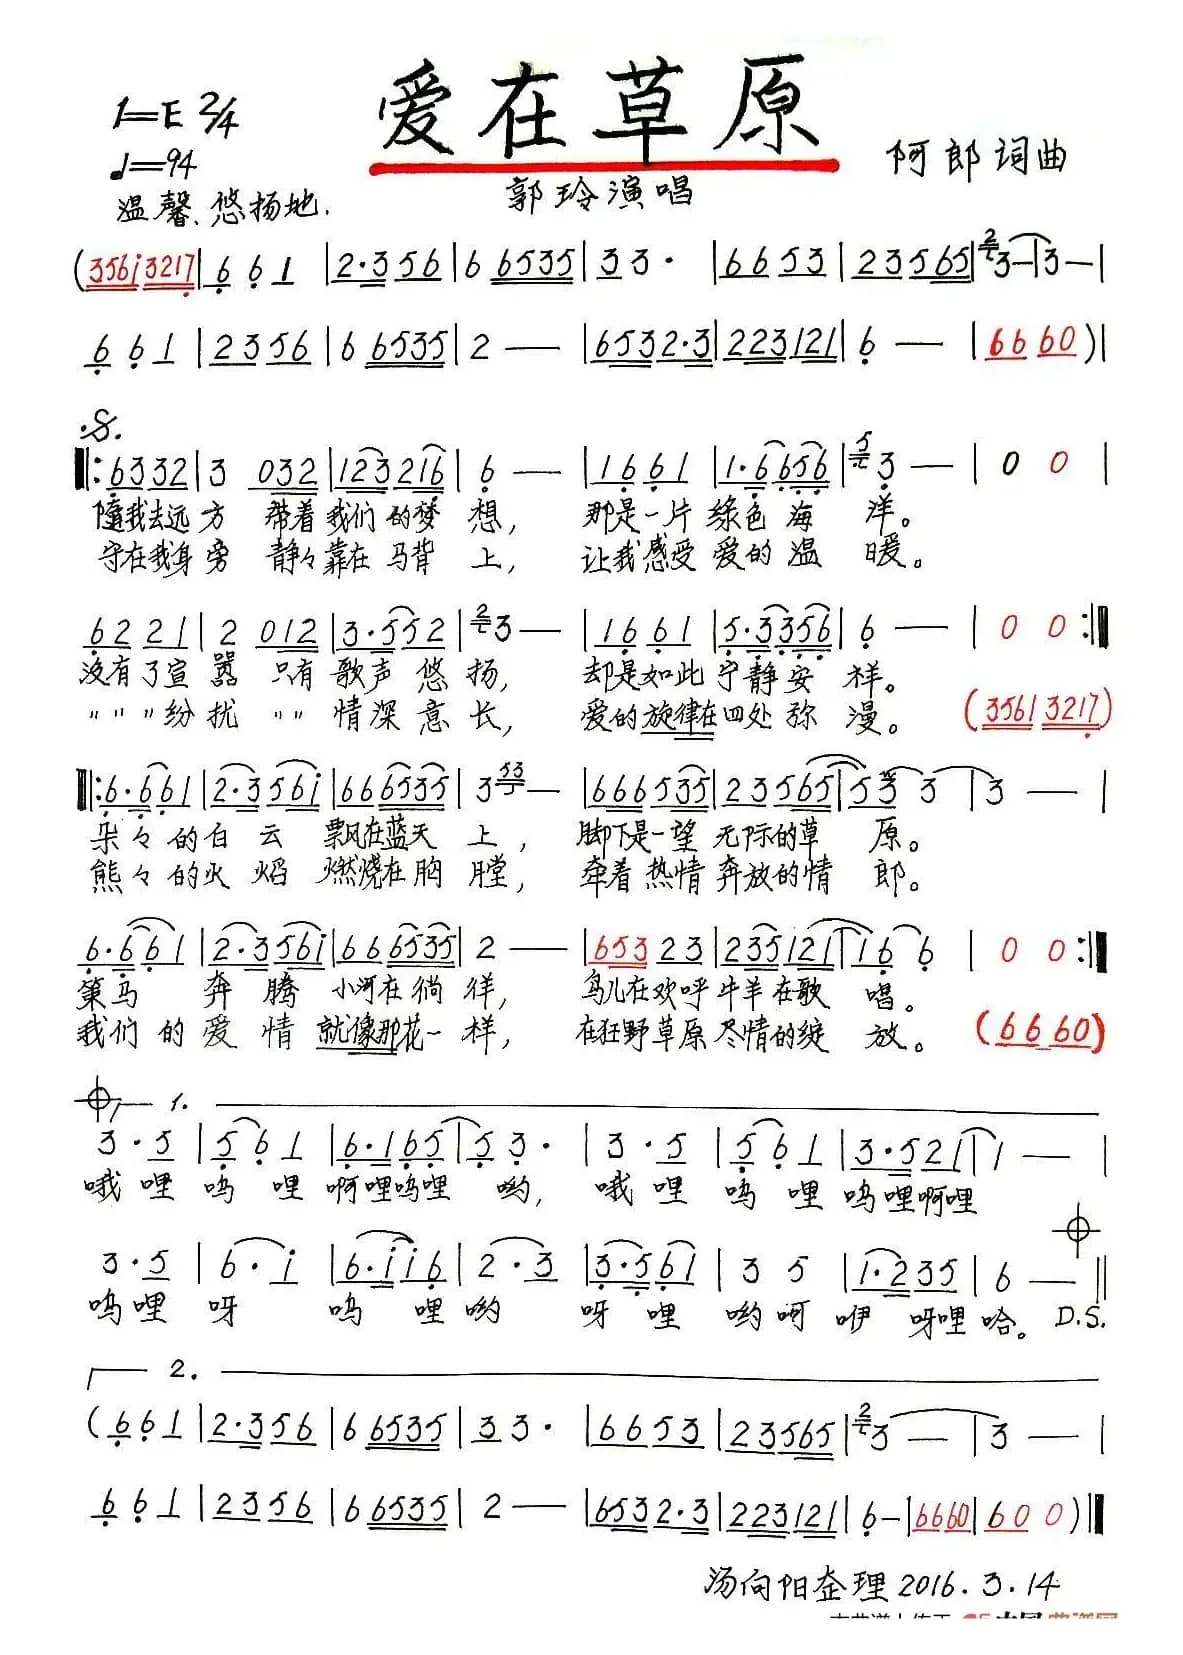 爱在草原
1=E 2/4
♩=94
阿郎词曲
温馨、悠扬地.
郭玲演唱
(356i 3217 | 6 6 1 | 2·356 | 6 6535 | 3 3· | 6653 | 23565 | 3— | 3— |
6 6 1 | 2356 | 6 6535 | 2 — | 6532·3 | 223121 | 6 — | 6660)|
𝄋.
‖: 6332 | 3 032 | 123216 | 6 — | 1661 | 1·6656 | 3 — | 0 0 |
随我去远方 带着我们的梦想, 那是一片绿色海洋。
守在我身旁 静々靠在马背上, 让我感受爱的温暖。
6221 | 2 012 | 3·552 | 3 — | 1661 | 5·3356 | 6 — | 0 0 :‖
没有了宣嚣 只有歌声悠扬, 却是如此宁静安样。
" " "纷扰 " " 情深意长, 爱的旋律在四处弥漫。 (3561 3217)
‖: 6·661 | 2·356i | 666535 | 3 — | 666535 | 23565 | 53 3 | 3 — |
朵々的白云 飘在蓝天上, 脚下是一望无际的草原。
熊々的火焰 燃烧在胸膛, 牵着热情奔放的情郎。
6·661 | 2·356i | 666535 | 2 — | 65323 | 235121 | 16 6 | 0 0 :‖
策马奔腾 小河在徜徉, 鸟儿在欢呼牛羊在歌唱。
我们的爱情 就像那花一样, 在狂野草原尽情的绽放。 (6660)
1.
3·5 | 5 6 1 | 6·165 | 5 3· | 3·5 | 5 6 1 | 3·521 | 1 — |
哦哩呜哩啊哩呜哩哟, 哦哩呜哩呜哩啊哩
3·5 | 6·i | 6·ii6 | 2·3 | 3·561 | 3 5 | 1·235 | 6 — ‖
呜哩呀呜哩哟呀哩哟呵咿呀哩哈。 D.S.
2.
(6 6 1 | 2·356 | 6 6535 | 3 3· | 6653 | 23565 | 3 — | 3 — |
6 6 1 | 2356 | 6 6535 | 2 — | 6532·3 | 223121 | 6— | 6660 | 6 0 0)‖
汤向阳整理2016.3.14